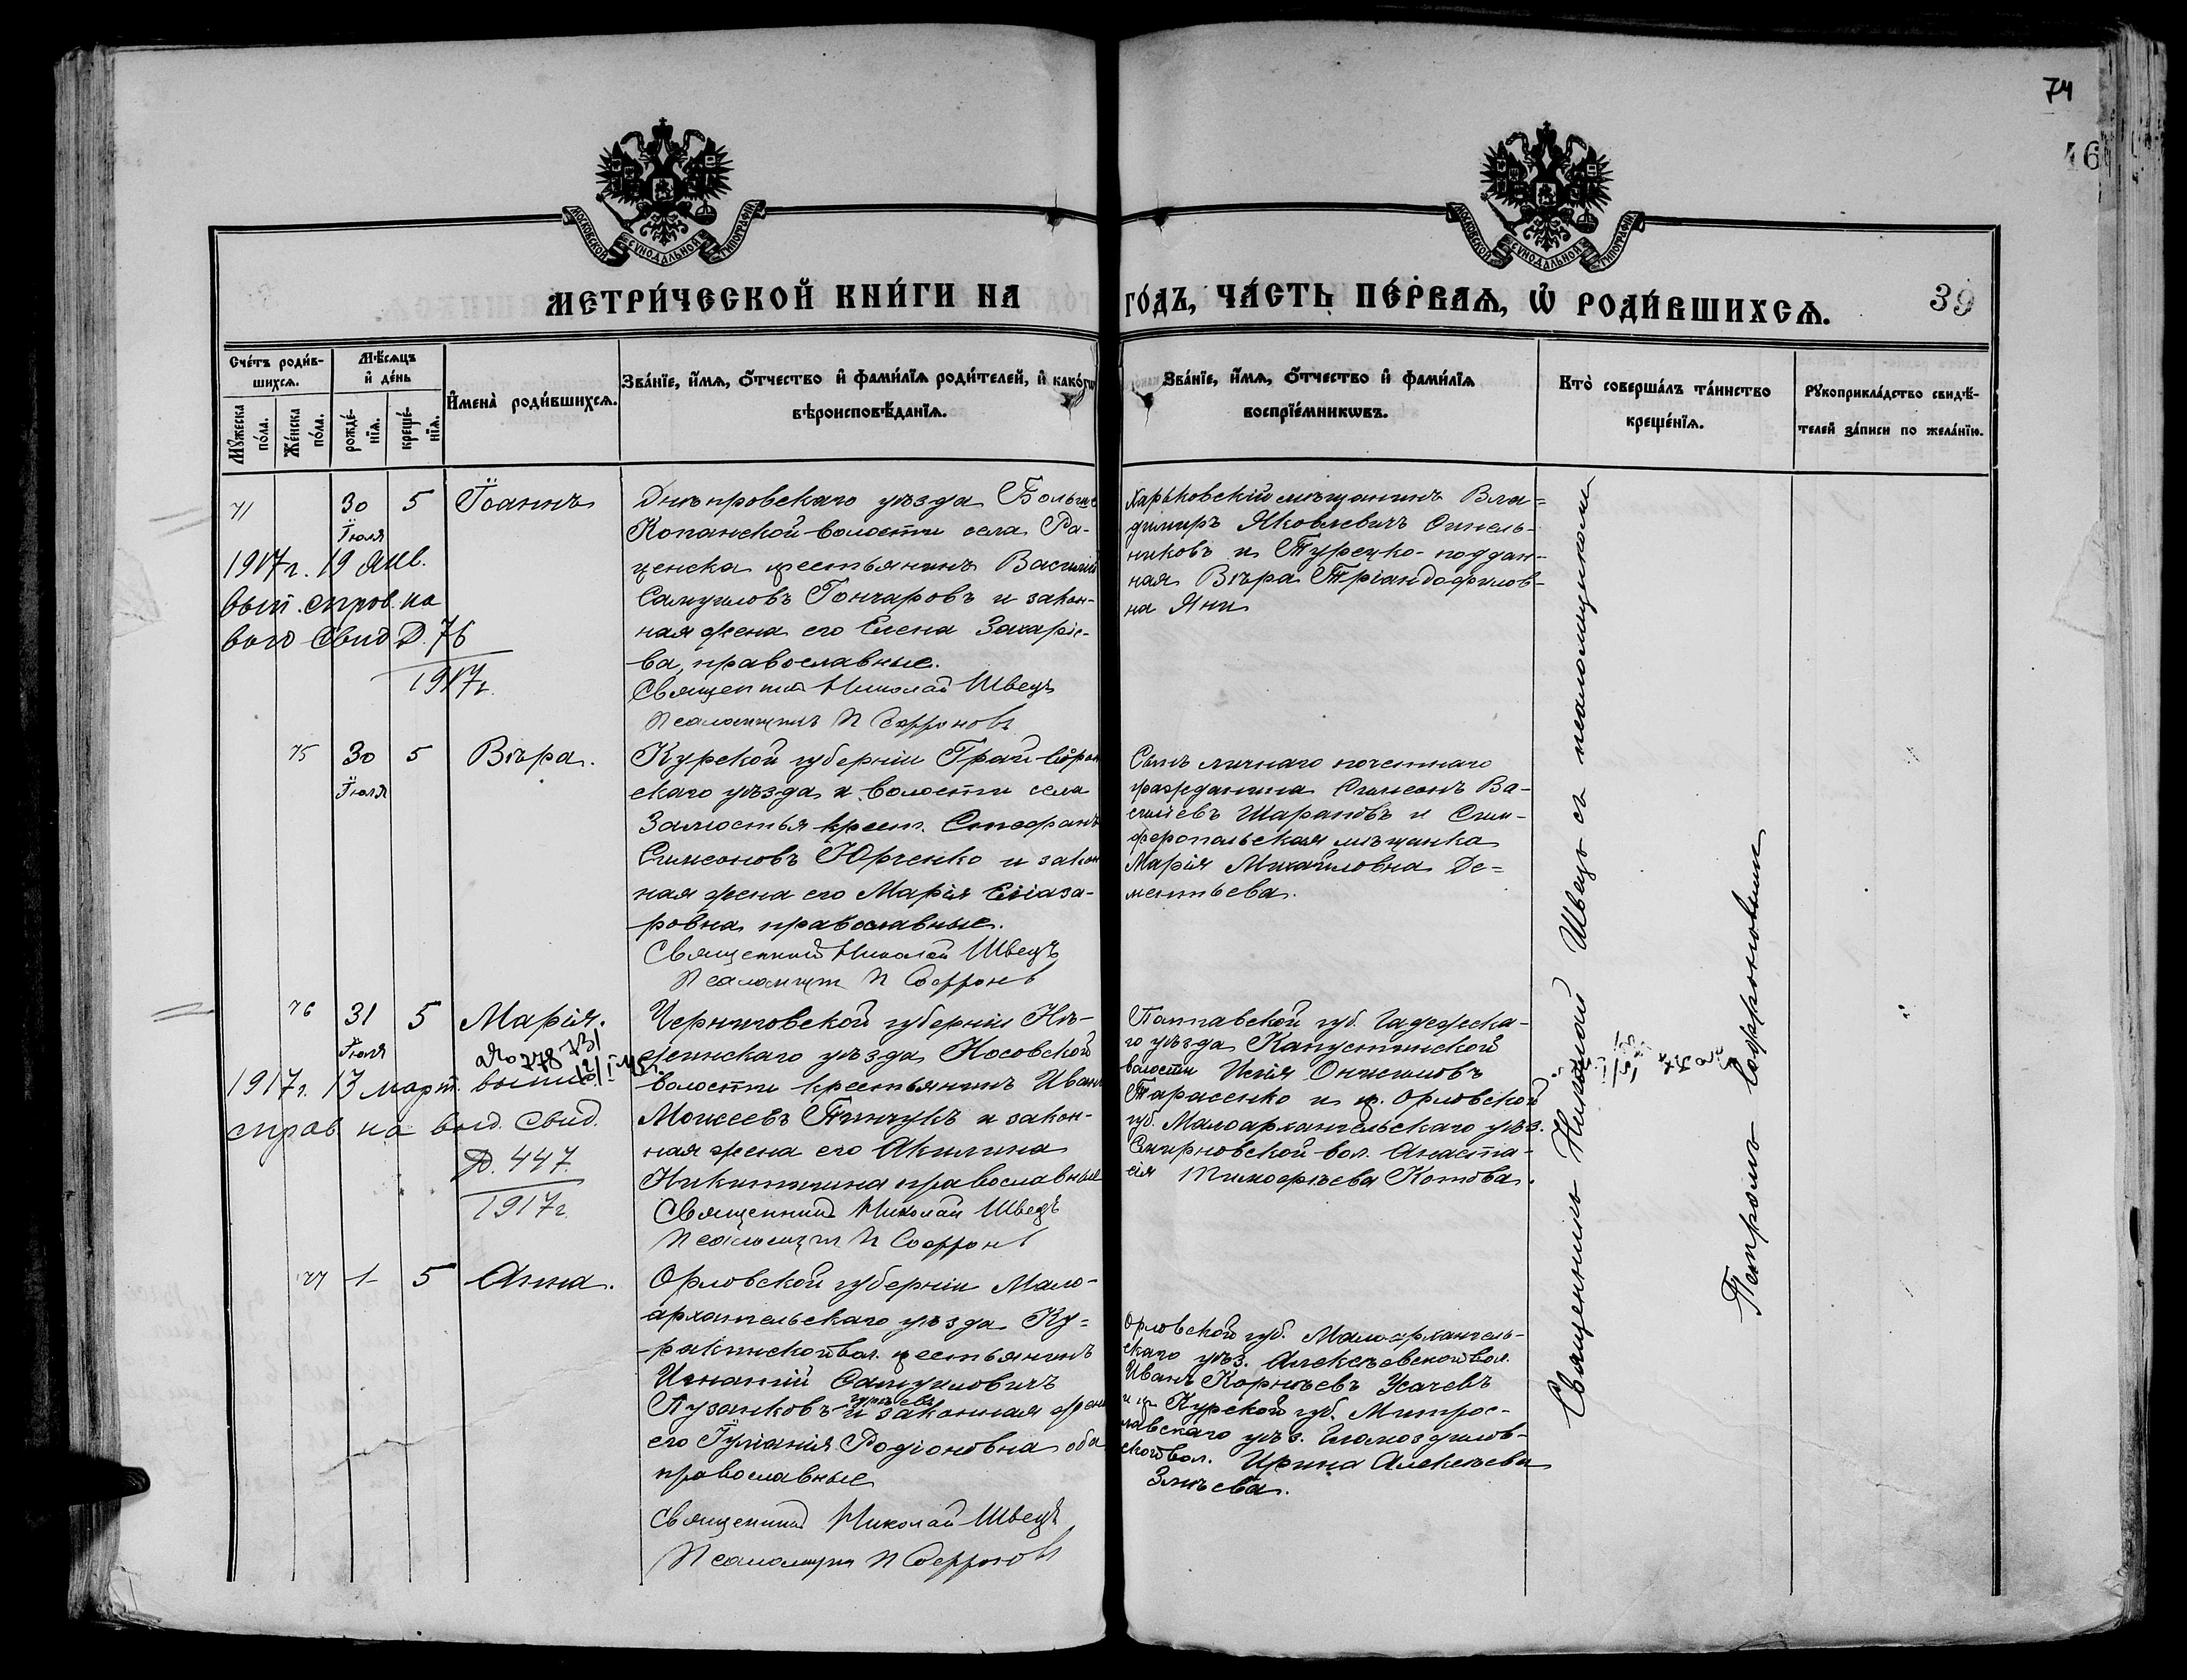 74
46
МОСКОВСКОЙ СУНОДАЛЬНОЙ ТИПОГРАФІИ
МОСКОВСКОЙ СУНОДАЛЬНОЙ ТИПОГРАФІИ
МЕТРИ́ЧЕСКОЙ КНИ́ГИ НА
ГО́ДЪ, ЧА́СТЬ ПЕ́РВАѦ, Ѡ҆ РОДИ́ВШИХСѦ.
39
Сче́тъ роди́в-
шихсѧ.
Мѣ́сѧцъ
и҆ де́нь
Мꙋ́жеска по́ла.
Же́нска по́ла.
рожде́-
нїѧ.
креще́-
нїѧ.
И҆мена̀ роди́вшихсѧ.
Зва́нїе, и҆́мѧ, ѻ҆́тчество и҆ фами́лїѧ роди́телей, и҆ како́гѡ
вѣроисповѣ́данїѧ.
Зва́нїе, и҆́мѧ, ѻ҆́тчество и҆ фами́лїѧ
воспрїе́мникѡвъ.
Кто̀ соверша́лъ та́инство
креще́нїѧ.
Рꙋкоприкла́дство свидѣ́-
телей за́писи по жела́нїю.
71
30
Іюля
5
Іоаннъ
Днѣпровскаго уѣзда Больше
Копанской волости села Ра-
ценска крестьянинъ Василій
Самуиловъ Гончаровъ и закон-
ная жена его Елена Захаріе-
ва, православные.
Священникъ Николай Швецъ
Псаломщикъ П Софроновъ
Харьковскій мѣщанинъ Вла-
димиръ Яковлевичъ Синель-
никовъ и Турецко-поддан-
ная Вѣра Тріандафилов-
на Яни
1917г. 19 янв.
выд. справ. на
выд свид Д. 76
1917г.
75
30
Іюля
5
Вѣра.
Курской губерніи Грайворон
скаго уѣзда и волости села
Замостья крест. Стефанъ
Симеоновъ Юрченко и закон
ная жена его Марія Елиаза-
ровна православные.
Священникъ Николай Швецъ
Псаломщик П Софронов
Сынъ личнаго почетнаго
гражданина Симеонъ Ва-
силіевъ Шараповъ и Сим-
феропольская мѣщанка
Марія Михайловна Де-
ментьева.
76
31
Іюля
5
Марія.
Черниговской губерніи Нѣ-
жинскаго уѣзда Носовской
волости крестьянинъ Иванъ
Моисеевъ Пинчукъ и закон-
ная жена его Акилина
Никитична православные
Священникъ Николай Швецъ
Псаломщик П Софронов
Полтавской губ. Гадяжска-
го уѣзда Капустинской
волости Илія Онисимовъ
Тарасенко и кр. Орловской
губ. Малоархангельскаго уѣз.
Смирновской вол. Анаста-
сія Тимофѣева Котова.
1917г. 13 март.
справ на выд. свид.
Д. 447
1917г.
77
1
5
Анна.
Орловской губерніи Мало-
архангельскаго уѣзда Ку-
ракинской вол. крестьянинъ
Игнатій Самуиловичъ
Пузанковъ и законная жена
его Іуліанія Родіоновна оба
православные
Священникъ Николай Швецъ
Псаломщик П Софронов
Орловской губ. Малоархангель-
скаго уѣз. Алексѣевской вол.
Иванъ Корнѣевъ Усачевъ
и кр. Курской губ.
скаго уѣз.
ской вол. Ирина Алексѣева
Змѣева.
Священникъ Николай Швецъ съ псаломщикомъ
Петромъ Софроновымъ